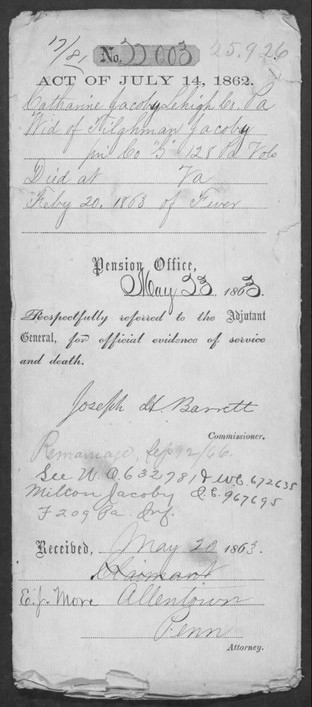 17/81 No. 22003 25.926
ACT OF JULY 14, 1862.
Catharine Jacoby Lehigh Co. Pa
Wid of Tilghman Jacoby
pri Co "G" 128 Pa Vols
Died at Va
Feby 20. 1863 of Fever
Pension Office,
May 23, 1863.
Respectfully referred to the Adjutant
General, for official evidence of service
and death.
Joseph H. Barrett
Commissioner.
Remarriage, Sep 92/66.
See W.O. 632,781 & W.C. 672635
Milton Jacoby O.C. 967695
F 209 Pa. Inf.
Received, May 20 1863.
Claimant
E.J. More Allentown
Penn
Attorney.